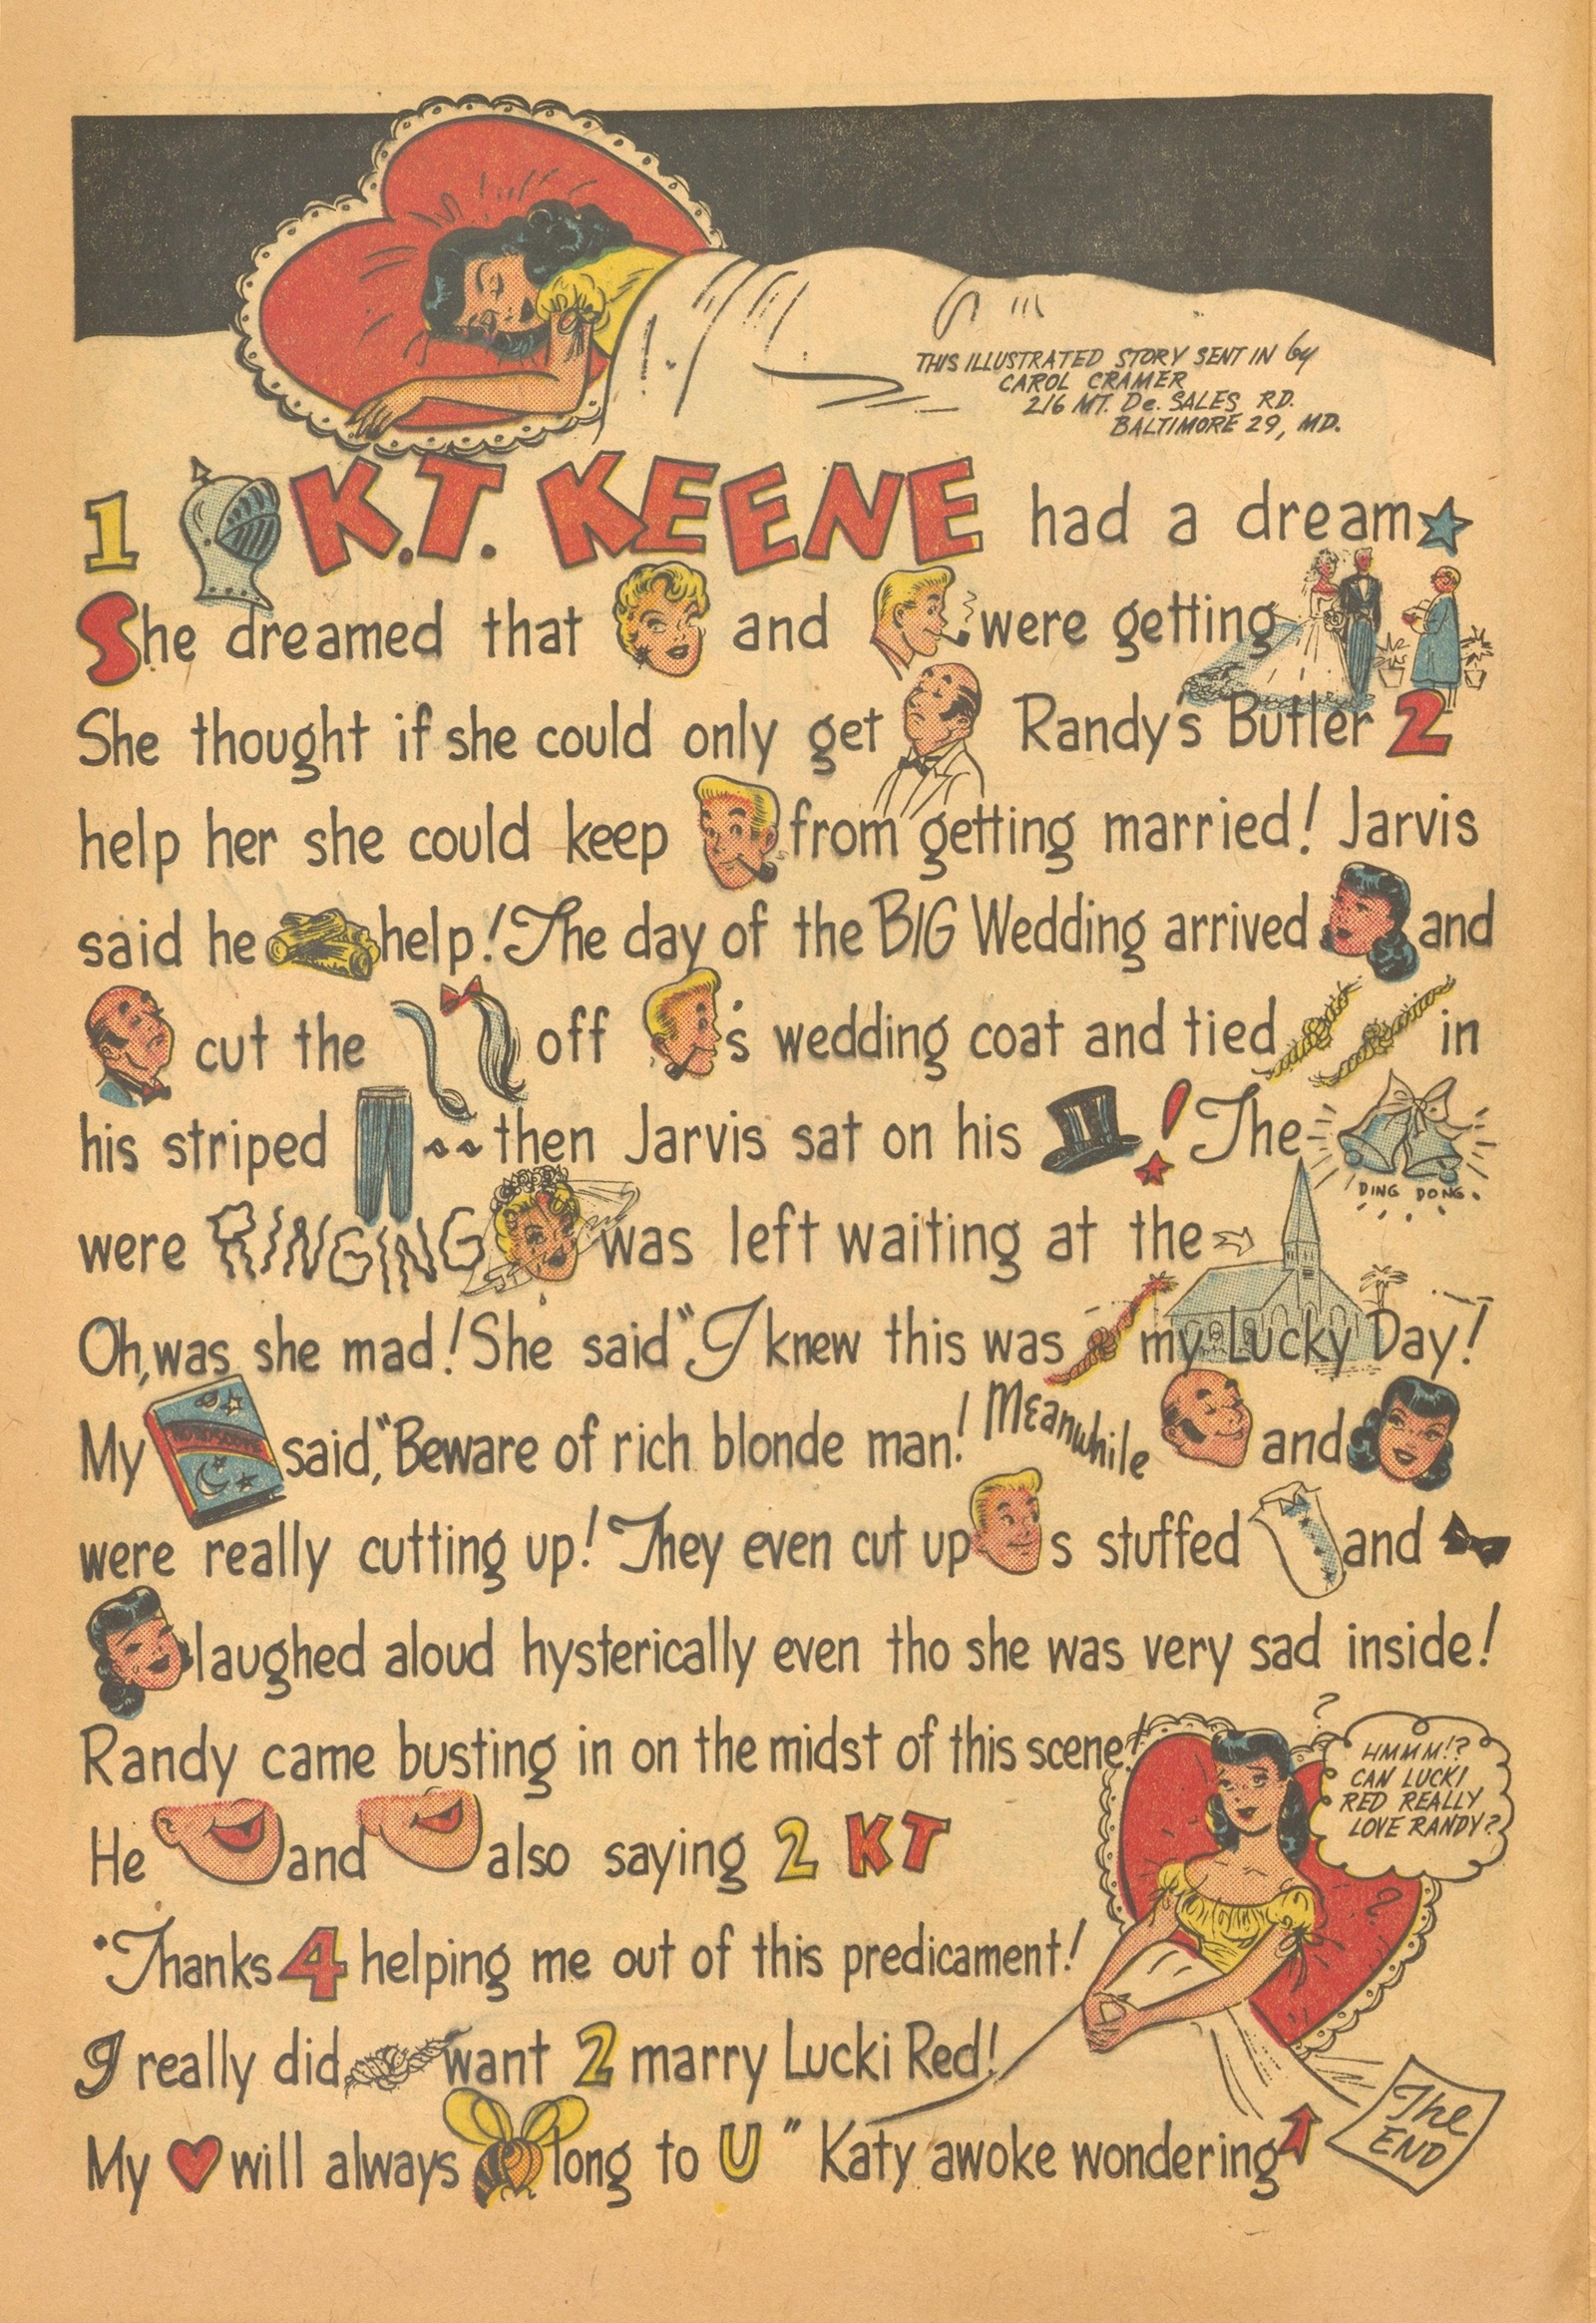 THIS ILLUSTRATED STORY SENT IN by
CAROL CRAMER
216 MT. De. SALES RD.
BALTIMORE 29, MD.
1 K.T. KEENE had a dream
She dreamed that and were getting
She thought if she could only get Randy's Butler 2
help her she could keep from getting married! Jarvis
said he help! The day of the BIG Wedding arrived and
cut the off 's wedding coat and tied in
his striped then Jarvis sat on his ! The
DING DONG.
were RINGING was left waiting at the
Oh, was she mad! She said "I knew this was my Lucky Day!
My said, "Beware of rich blonde man! Meanwhile and
were really cutting up! They even cut up s stuffed and
laughed aloud hysterically even tho she was very sad inside!
Randy came busting in on the midst of this scene!
He and also saying 2 KT
"Thanks 4 helping me out of this predicament!
I really did want 2 marry Lucki Red!
My will always long to U" Katy awoke wondering
?
HMMM!?
CAN LUCKI
RED REALLY
LOVE RANDY?
?
The
END